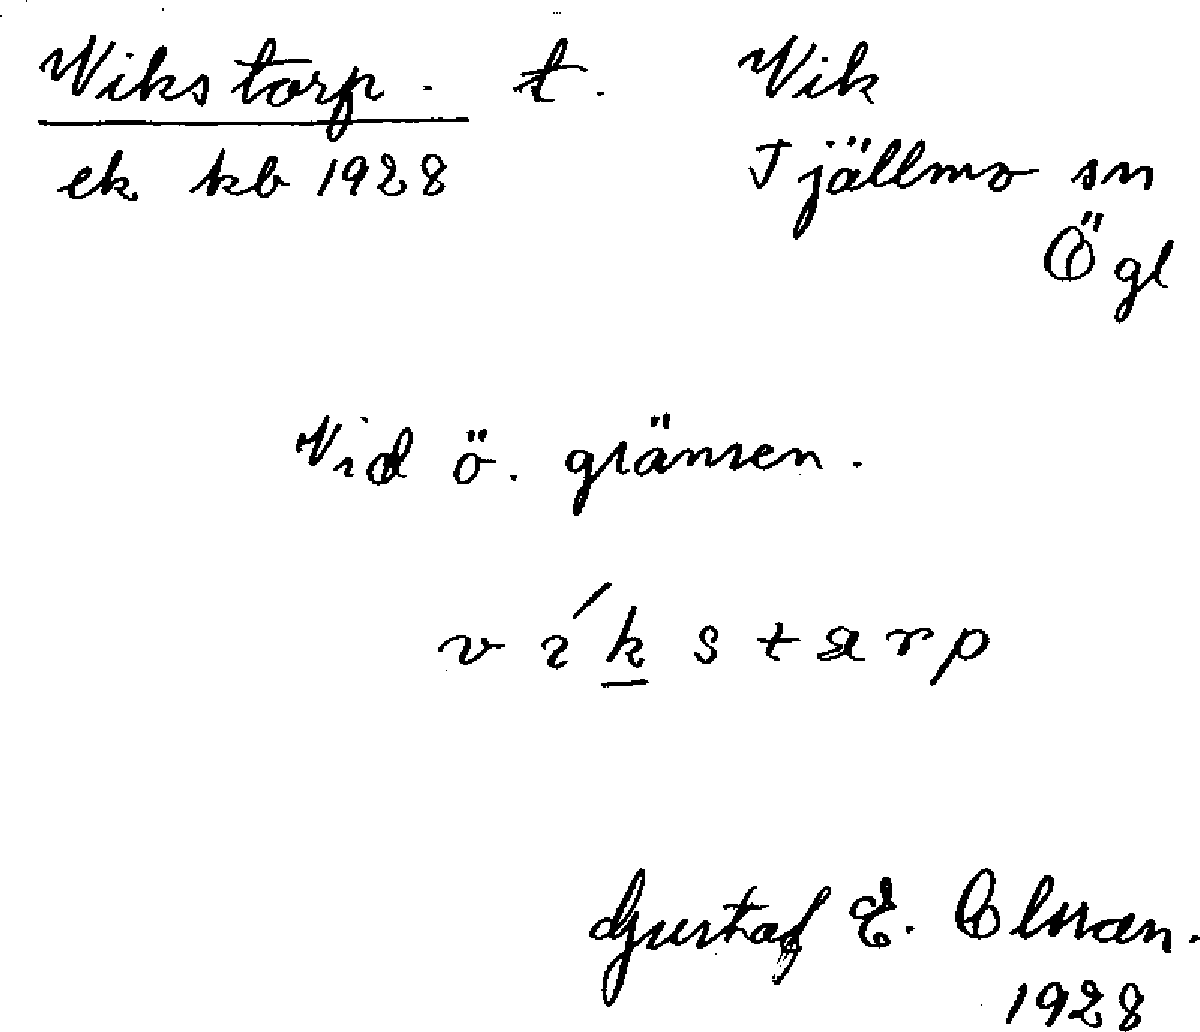 Vikstorp. t. Vik
ek kb 1928 Tjällmo sn
Ögl
Vid ö. gränsen.
víkstarp
Gustaf E. Olson.
1928